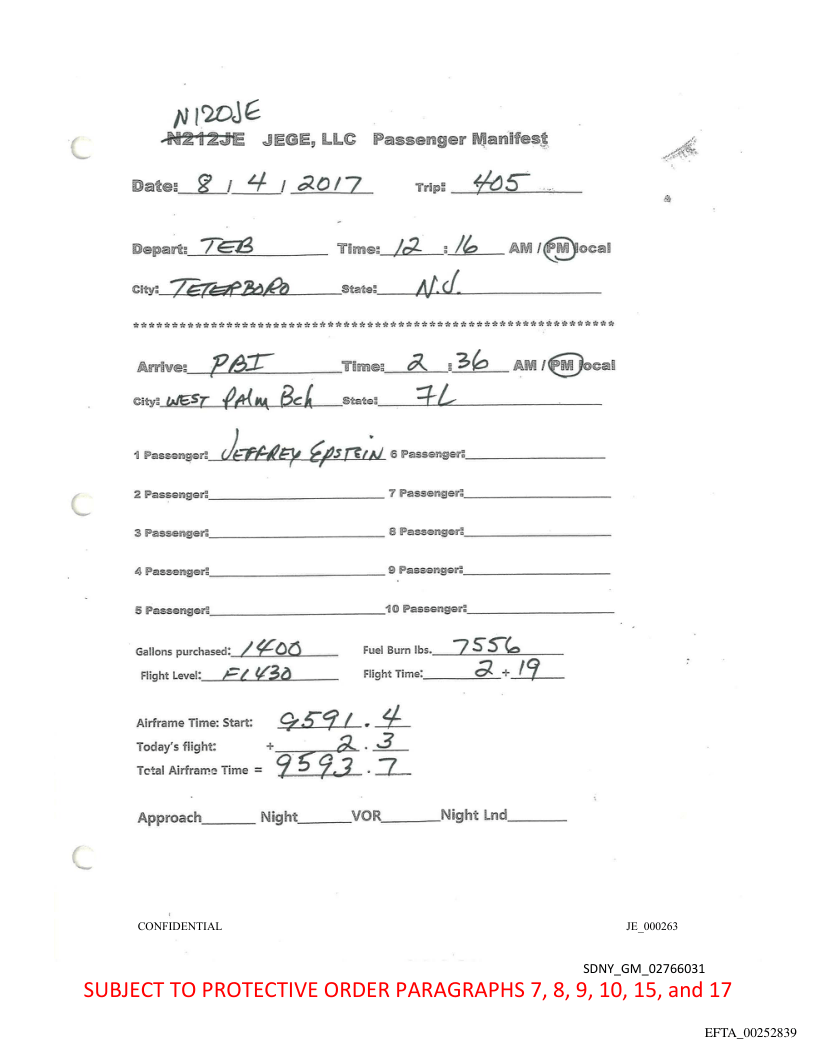 N120JE
N212JE JEGE, LLC Passenger Manifest
Date: 8 / 4 / 2017 Trip: 405
Depart: TEB Time: 12 : 16 AM / PM local
City: TETERBORO State: N.J.
****************************************************************
Arrive: PBI Time: 2 : 36 AM / PM local
City: WEST PAlm Bch State: FL
1 Passenger: JEFFREY EPSTEIN 6 Passenger:
2 Passenger: 7 Passenger:
3 Passenger: 8 Passenger:
4 Passenger: 9 Passenger:
5 Passenger: 10 Passenger:
Gallons purchased: 1400 Fuel Burn lbs. 7556
Flight Level: FL430 Flight Time: 2 + 19
Airframe Time: Start: 9591.4
Today's flight: + 2.3
Total Airframe Time = 9593.7
Approach Night VOR Night Lnd
CONFIDENTIAL JE_000263
SDNY_GM_02766031
SUBJECT TO PROTECTIVE ORDER PARAGRAPHS 7, 8, 9, 10, 15, and 17
EFTA_00252839